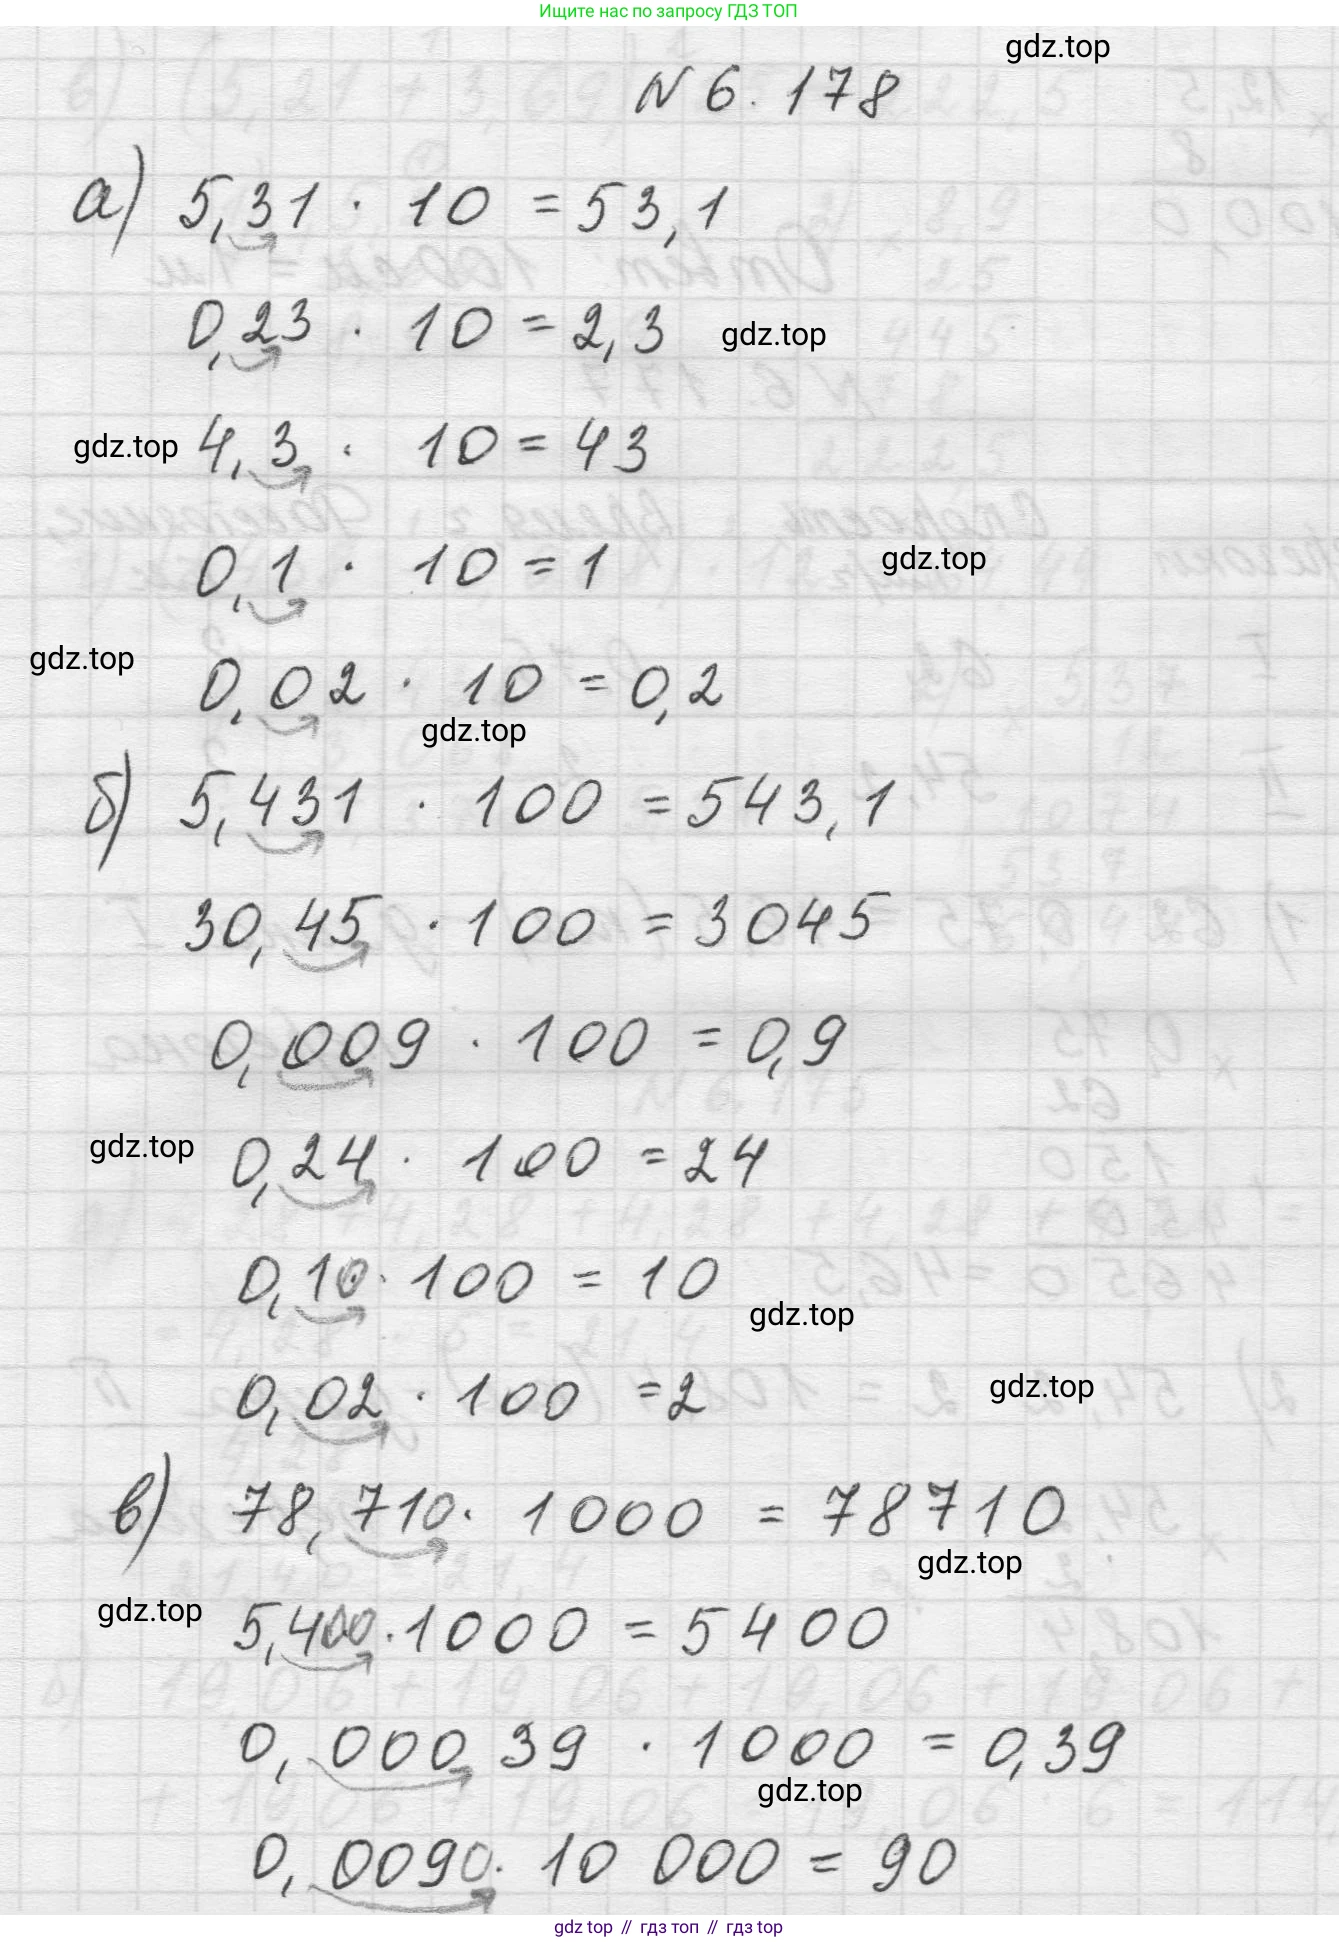 Ищите нас по запросу ГДЗ ТОП
gdz.top
N 6. 178
а) 5,31 · 10 = 53,1
0,23 · 10 = 2,3
gdz.top
gdz.top
4,3 · 10 = 43
0,1 · 10 = 1
gdz.top
gdz.top
0,02 · 10 = 0,2
gdz.top
б) 5,431 · 100 = 543,1
30,45 · 100 = 3045
0,009 · 100 = 0,9
gdz.top
0,24 · 100 = 24
0,10 · 100 = 10
gdz.top
0,02 · 100 = 2
gdz.top
в) 78,710 · 1000 = 78710
gdz.top
gdz.top
5,400 · 1000 = 5400
0,00039 · 1000 = 0,39
gdz.top
0,0090 · 10 000 = 90
gdz top // гдз топ // гдз top